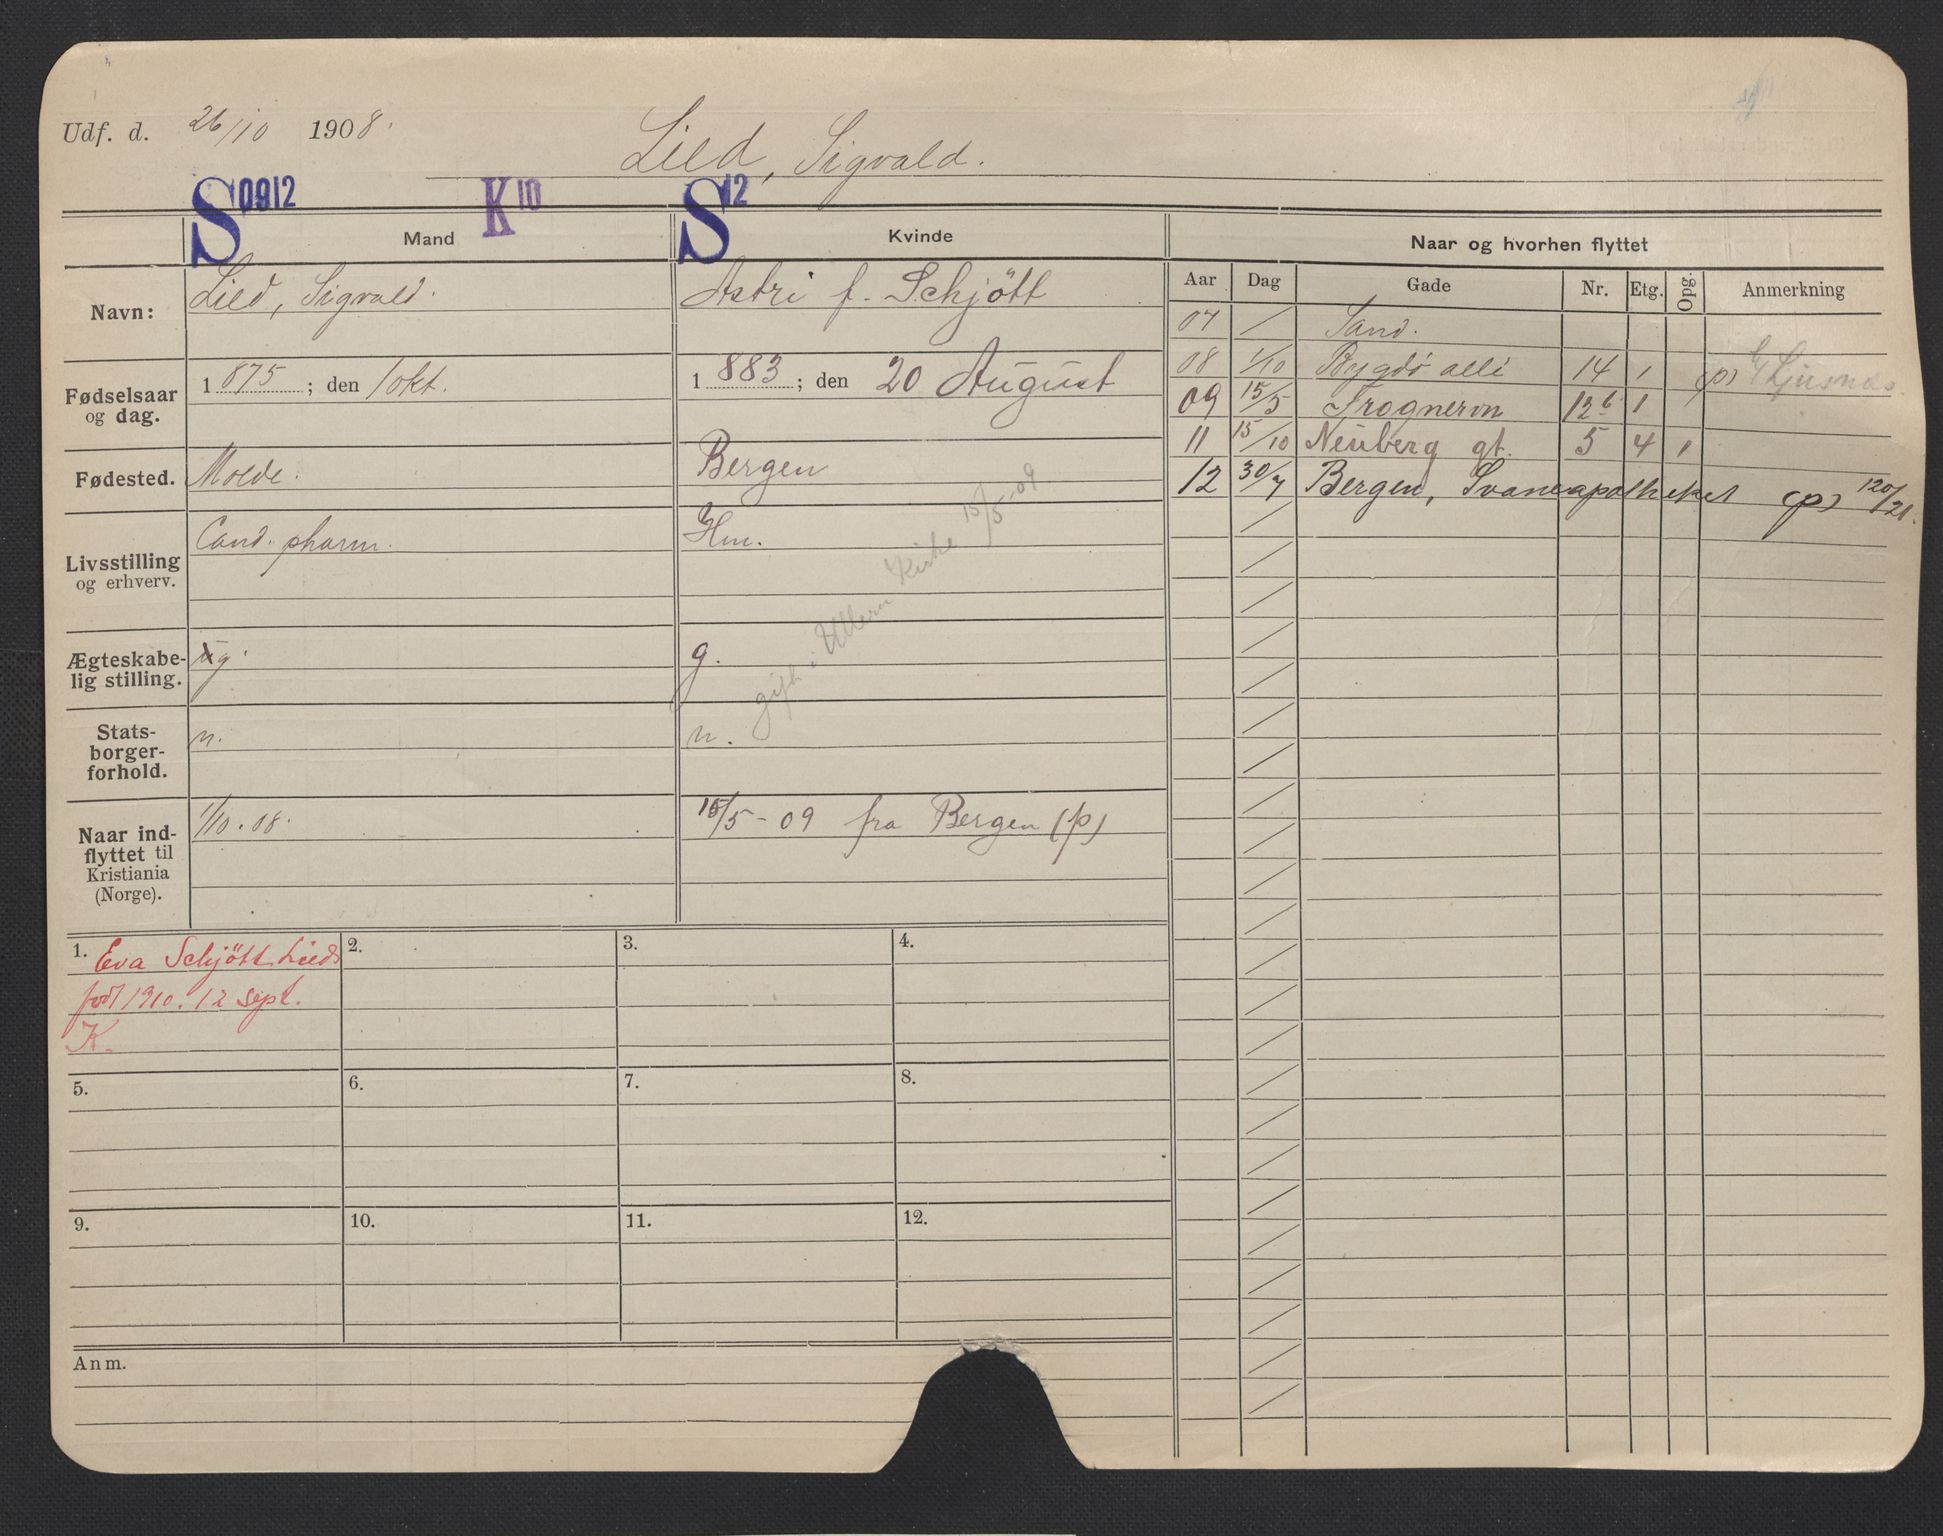 Udf. d. 26/10 1908.
Lied, Sigvald.
S 0912 K 10 S 12
Mand Kvinde Naar og hvorhen flyttet
Navn: Lied, Sigvald. Astri f. Schjött
Fødselsaar og dag. 1 875 ; den 1 okt. 1 883 ; den 20 August
Fødested. Molde. Bergen
Livsstilling og erhverv. Cand. pharm. Hm.
gift i Ullern Kirke 15/5 09.
Ægteskabelig stilling. g. g.
Statsborgerforhold. n. n.
Naar indflyttet til Kristiania (Norge). 1/10. 08. 15/5 - 09 fra Bergen (p)
Aar Dag Gade Nr. Etg. Opg. Anmerkning
07 / Sand.
08 1/10 Bygdø alli 14 1 (p)
09 15/5 Trognervn 12 b 1
11 15/10 Neuberg gt. 5 4 1
12 30/7 Bergen, Svaneapotheket (p) 120/21.
1. Eva Schjött Lied
født 1910. 12 sept.
K.
2.
3.
4.
5.
6.
7.
8.
9.
10.
11.
12.
Anm.